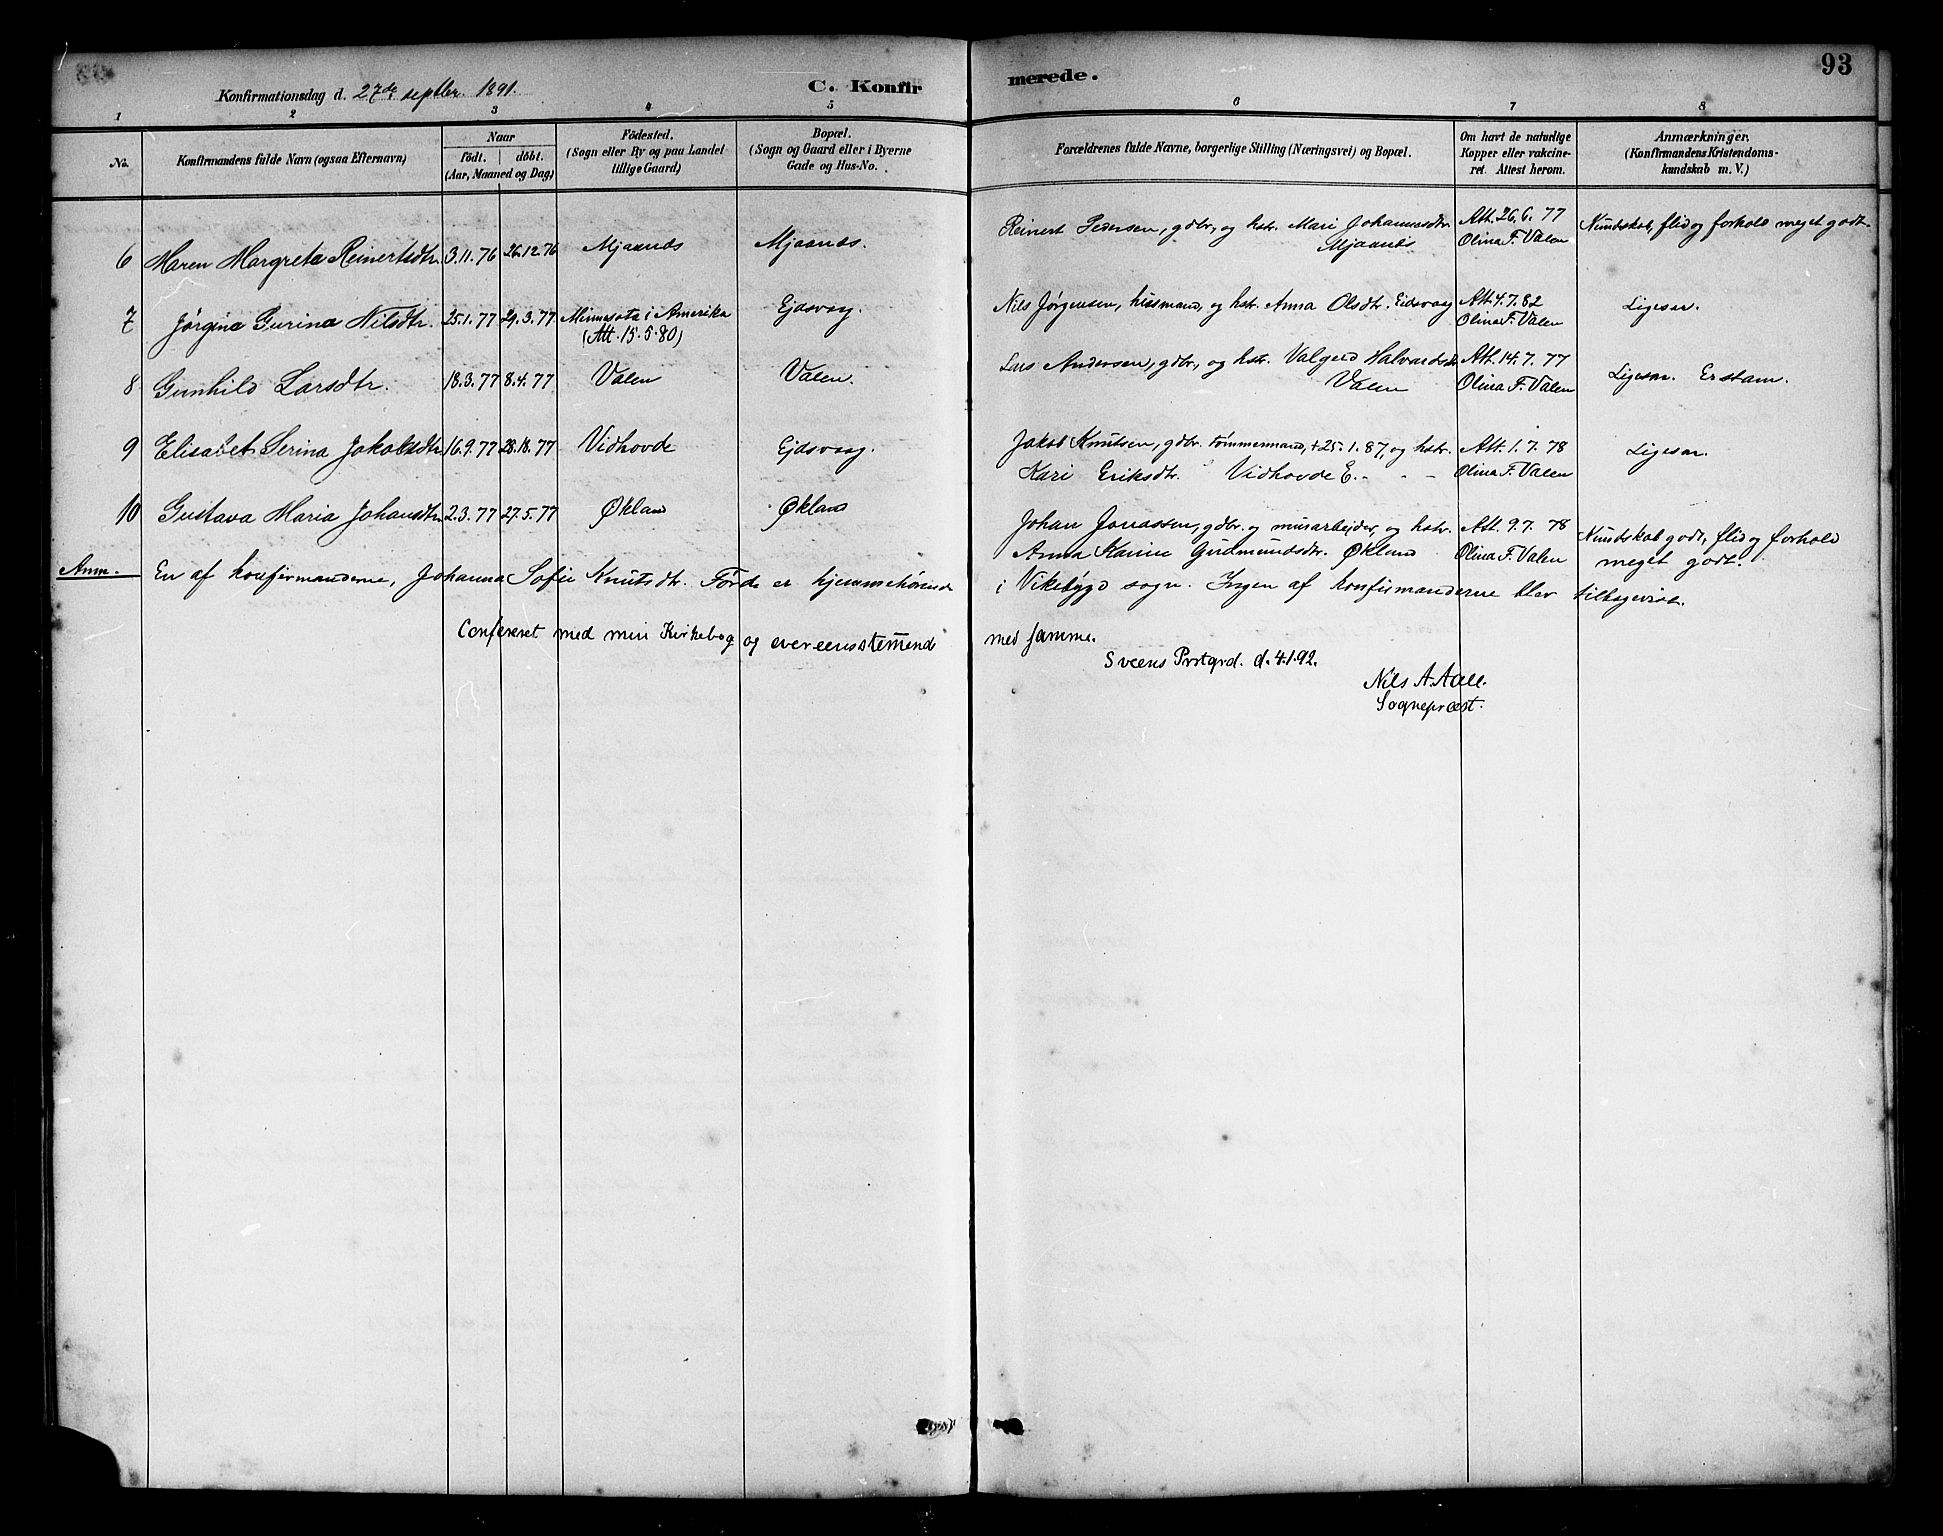 93
Konfirmationsdag d. 27de septbr. 1891.
C. Konfirmerede.
1 2 3 4 5 6 7 8
No.
Konfirmandens fulde Navn (ogsaa Efternavn)
Naar
födt. | döbt.
(Aar, Maaned og Dag)
Födested.
(Sogn eller By og paa Landet
tillige Gaard)
Bopæl.
(Sogn og Gaard eller i Byerne
Gade og Hus-No.
Forældrenes fulde Navne, borgerlige Stilling (Næringsvei) og Bopæl.
Om havt de naturlige
Kopper eller vakcine-
ret. Attest herom.
Anmærkninger.
(Konfirmandens Kristendoms-
kundskab m. V.)
6 Maren Margreta Reinertsdtr. 3.11.76 26.12.76 Mjaanes Mjaanes. Reinert Pedersen, gdbr., og hstr. Mari Johannesdtr. Att. 26.6.77 Kundskab, flid og forhold meget godt.
Mjaanes Olina F. Valen
7 Jørgina Gurina Nilsdtr. 25.1.77 29.3.77 Minnesota i Amerika Ejdsvaag. Nils Jørgensen, husmand, og hstr. Anna Olsdtr. Eidsvaag Att. 4.7.82 Ligesaa.
(Att. 15.5.80) Olina F. Valen
8 Gunhild Larsdtr. 18.3.77 8.4.77 Valen Valen. Lars Andersen, gdbr., og hstr. Valgerd Halvardsdtr. Att. 14.7.77 Ligesaa. Er stam.
Valen Olina F. Valen
9 Elisabet Serina Jakobsdtr. 16.9.77 28.18.77 Vidhovde Ejdsvaag. Jakob Knutsen, gdbr. tømmermand, +25.1.87, og hstr. Att. 1.7.78 Ligesaa.
Kari Eriksdtr. Vidhovde E. - - - Olina F. Valen
10 Gustava Maria Johansdtr. 2.3.77 27.5.77 Økland Økland Johan Jonassen, gdbr. og murarbejder, og hstr. Att. 9.7.78 Kundskab godt, flid og forhold
Anna Karine Gudmundsdtr. Økland Olina F. Valen meget godt.
Anm. En af konfirmanderne, Johanna Sofie Knutsdtr. Førde er hjemmehørende i Vikebygd sogn. Ingen af konfirmanderne blev tilbagevist.
Confereret med min Kirkebog og overeensstemmend med samme.
Sveens Prstgrd. d. 4.1.92.
Nils A. Aall.
Sognepræst.